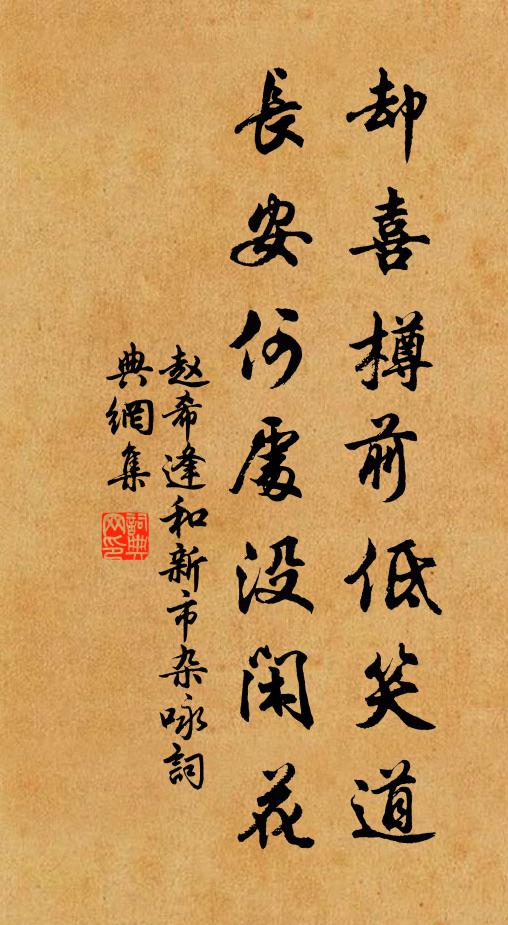 却喜樽前低笑道
長安何處没閑花
赵希逢和新市杂咏詞
典網集
詞典
网印